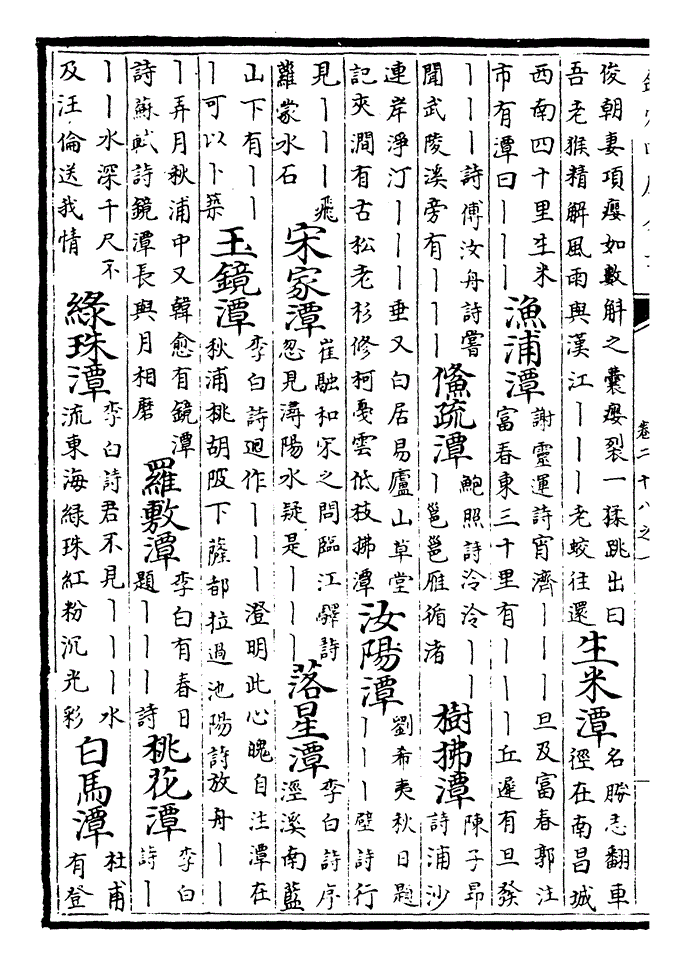 卷二十八之一
俊朝妻項癭如數斛之囊癭裂一猱跳出曰
吾老猴精解風雨與漢江丨丨丨丨老蛟往還
生米潭
名勝志翻車
徑在南昌城
西南四十里生米
市有潭曰丨丨丨
漁浦潭
謝靈運詩宵濟丨丨丨旦及富春郭注
富春東三十里有丨丨丨丘遲有旦發
丨丨丨詩傅汝舟詩嘗
聞武陵溪旁有丨丨丨
鯈疏潭
鮑照詩泠泠丨丨
丨邕邕雁循渚
樹拂潭
陳子昂
詩浦沙
連岸淨汀丨丨丨垂又白居易廬山草堂
記夾澗有古松老杉修柯戞雲低枝拂潭
汝陽潭
劉希夷秋日題
丨丨丨壁詩行
見丨丨丨飛
蘿蒙水石
宋家潭
崔融和宋之問臨江驛詩
忽見潯陽水疑是丨丨丨
落星潭
李白詩序
涇溪南藍
山下有丨丨
丨可以卜築
玉鏡潭
李白詩迴作丨丨丨澄明此心魄自注潭在
秋浦桃胡陂下薩都拉過池陽詩放舟丨丨
丨弄月秋浦中又韓愈有鏡潭
詩蘇軾詩鏡潭長與月相磨
羅敷潭
李白有春日
題丨丨丨詩
桃花潭
李白
詩丨
丨丨水深千尺不
及汪倫送我情
綠珠潭
李白詩君不見丨丨丨水
流東海綠珠紅粉沉光彩
白馬潭
杜甫
有登